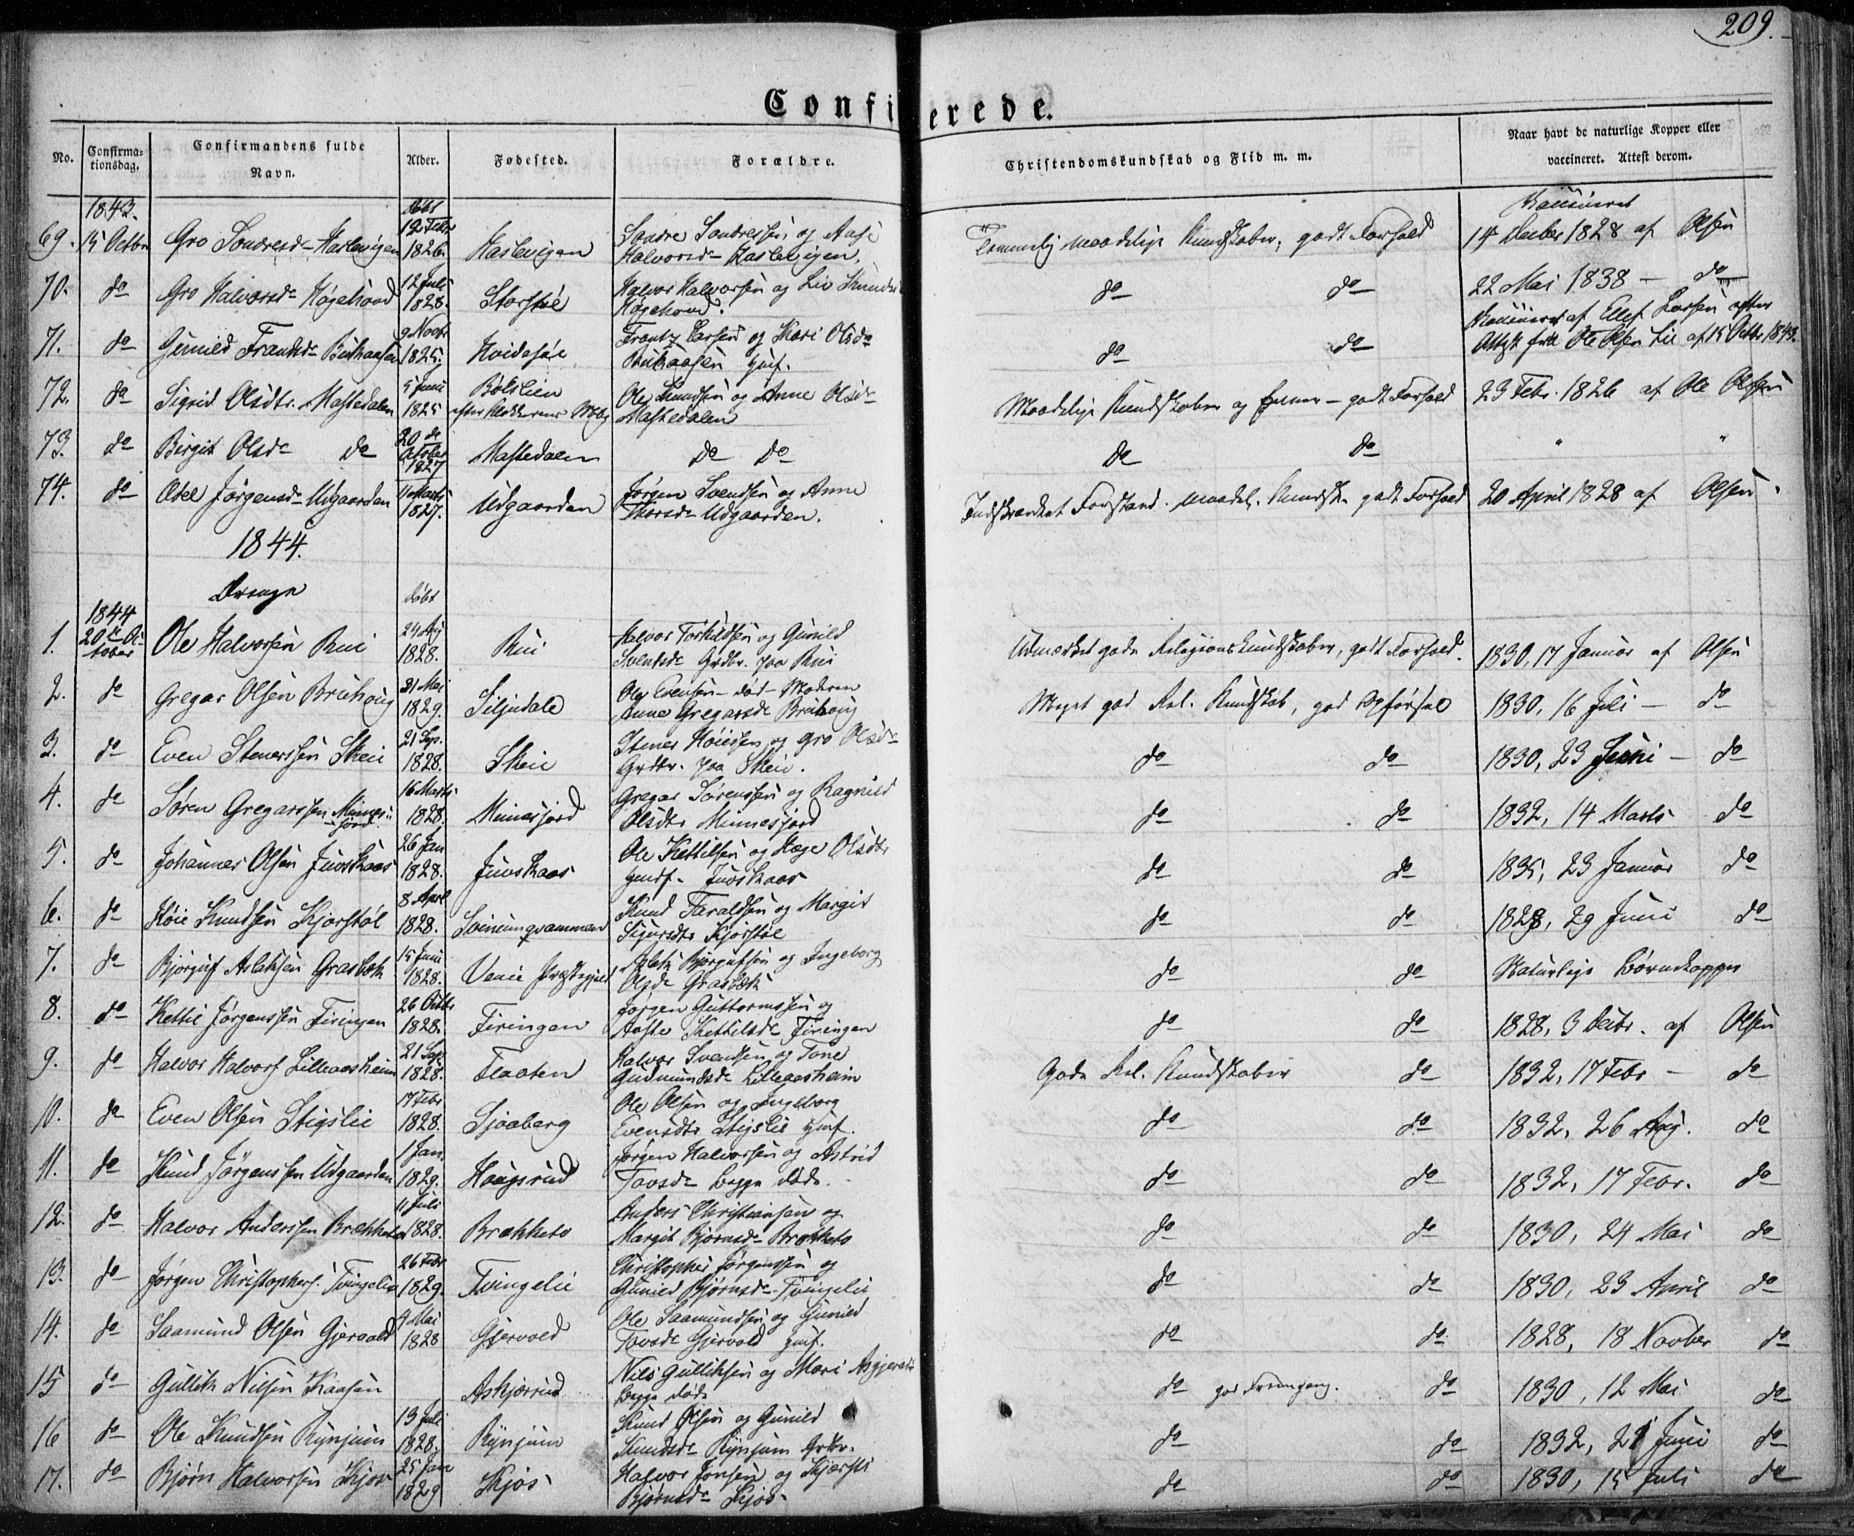 209.
Confirmerede.
No. Confirmationsdag. Confirmandens fulde Navn. Alder. Fødested. Forældre. Christendomskundskab og Flid m. m. Naar havt de naturlige Kopper eller vaccineret. Attest derom.
1843. døbt Vaccineret
69. 15 Octbr Gro Sondresd. Haslevigen 12 Febr 1826. Haslevigen Sondre Sondresen og Aase Halvorsd. Haslevigen. Temmelig maadelige Kundskaber, godt Forhold 14 Decbr 1828 af Olsen
70. do Gro Halvorsd. Høgehoved 12 Juli 1828. Starstøl Halvor Halvorsen og Liv Høgehoved. do do 22 Mai 1838 – do
71. do Gunild Frantsd. Buhaasen 9 Novbr 1825. Frantz Larsen og Kari Olsd. Buhaasen Huusf. do do Vaccineret af Ellef Larsen efter Attest fra Ole Olsen Lie af 15 Octbr 1843.
72. do Sigrid Olsdtr. Mastedalen 5 Juni 1825 Bølslien efter Klokkerens Ole Knudsen og Anne Olsd. Mastedalen Maadelige Kundskaber og – godt Forhold 23 Febr. 1826 af Ole Olsen
73. do Birgit Olsd. do 20de October 1827 Mastedalen do do do do " "
74. do Jørgensd. Udgaarden 11 Marts 1827. Udgaarden Jørgen Svendsen og Anne Thorsd. Udgaarden. Indskrænket Forstand. maadel. Kundsk. godt Forhold 20 April 1828 af Olsen.
1844.
Drenge døbt
1844
1. 20de October Ole Halvorsen Rui 24 Aug 1828. Rui Halvor Torkildsen og Gunild Svendsd. Grdbr. paa Rui Udmærket gode Religionskundskaber, godt Forhold. 1830, 17 Januar af Olsen
2. do Gregar Olsen Bruhoug 31 Mai 1829. Siljudale Ole Evensen – død – Moderen Anne Gregarsd. Bruhoug Meget god Rel. Kundskab, god Opførsel 1830, 16 Juli – do
3. do Even Stenersen Skeie 21 Sep. 1828. Skeie Stener Høiesen og Gro Olsd. Grdbr. paa Skeie. do do 1830, 23 Juni – do
4. do Søren Gregarssen Minnesjord 16 Marts 1828. Minnesjord Gregar Sørenssen og Ragnild Olsdtr Minnesjord do do 1832, 14 Marts do
5. do Johannes Olsen Juvskaas 26 Jan 1828. Juvskaas Ole Kettilsen og Hæge Olsdtr Huusf. Juvskaas do do 1835, 23 Januar do
6. do Høie Knudsen Kjorstøl 8 April 1828. Sveinungvammen Knud Taraldsen og Margit Sigurdtr Kjorstøl do do 1828, 29 Juni do
7. do Bjørguf Aslaksen Grasbæk 15 Juni 1828. Vinie Præstegjæld Aslak Bjørgufsen og Ingeborg Olsd. Grasbæk do do Naturlige Børnekopper
8. do Kettil Jørgenssen Firingen 26 Octbr 1828. Firingen Jørgen Guttormsen og Aaste Kettilsd. Firingen do do 1828, 3 Decbr. af Olsen
9. do Halvor Halvors. Lilleaasheim 21 Sep 1828. Flaaten Halvor Svendsen og Tone Gudmundsd. Lilleaasheim Gode Rel. Kundskaber do 1832, 17 Febr – do
10. do Even Olsen Stigslie 17 Febr 1828. Sjaaberg Ole Olsen og Ingeborg Evensdtr Stigslie Huusf. do do 1832, 26 Aug. do
11. do Knud Jørgenssen Udgaarden 1 Jan 1829. Haugsrud Jørgen Halvorsen og Astrid Tovsd. begge døde. do do 1832, 17 Febr. do
12. do Halvor Anderssen Brækketo 11 Juli 1828. Brækketo Anders Christiansen og Margit Bjørnsd. Brækketo do do 1830, 24 Mai do
13. do Jørgen Christophers. Tvingelie 26 Febr 1829. Tvingelie Christopher Jørgenssen og Gunild Bjørnsd. Tvingelie do do 1830, 23 April do
14. do Saamund Olsen Gjervold 9 Mai 1828 Gjervold Ole Saamundsen og Gunild Tovsd. Gjervold Huusf. do do 1828, 18 Novber do
15 do Gullik Nilsen Kaasen Askjerrud Nils Gulliksen og Mari Asgjersd. begge døde do god Fremgang. do 1830, 12 Mai do
16 do Ole Knudsen Rynjum 13 Juli 1828. Rynjum Knud Olsen og Gunild Knudsd. Rynjum Grdbr. do do 1832, 21 Juni do
17. do Bjørn Halvorsen Kjos 25 Jan 1829 Kjos Halvor Jonsen og Kjersti Bjørnsd. Kjos do do 1830, 15 Juli do